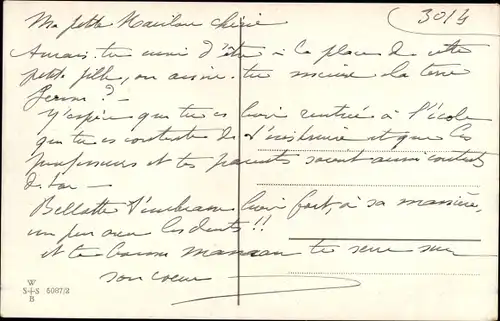 3014
Ma petite chérie
Aurais-tu envie d'être à la place de cette
petite fille, ou aimes-tu mieux la terre
ferme ? -
J'espère que tu es bien rentrée à l'école
que tu es contente de t'instruire et que les
professeurs et tes parents sont aussi contents
de toi -
t'embrasse bien fort, à sa manière,
un peu avec les dents !!
et ta bonne maman te serre sur
son coeur
W
S+S 5087/2
B